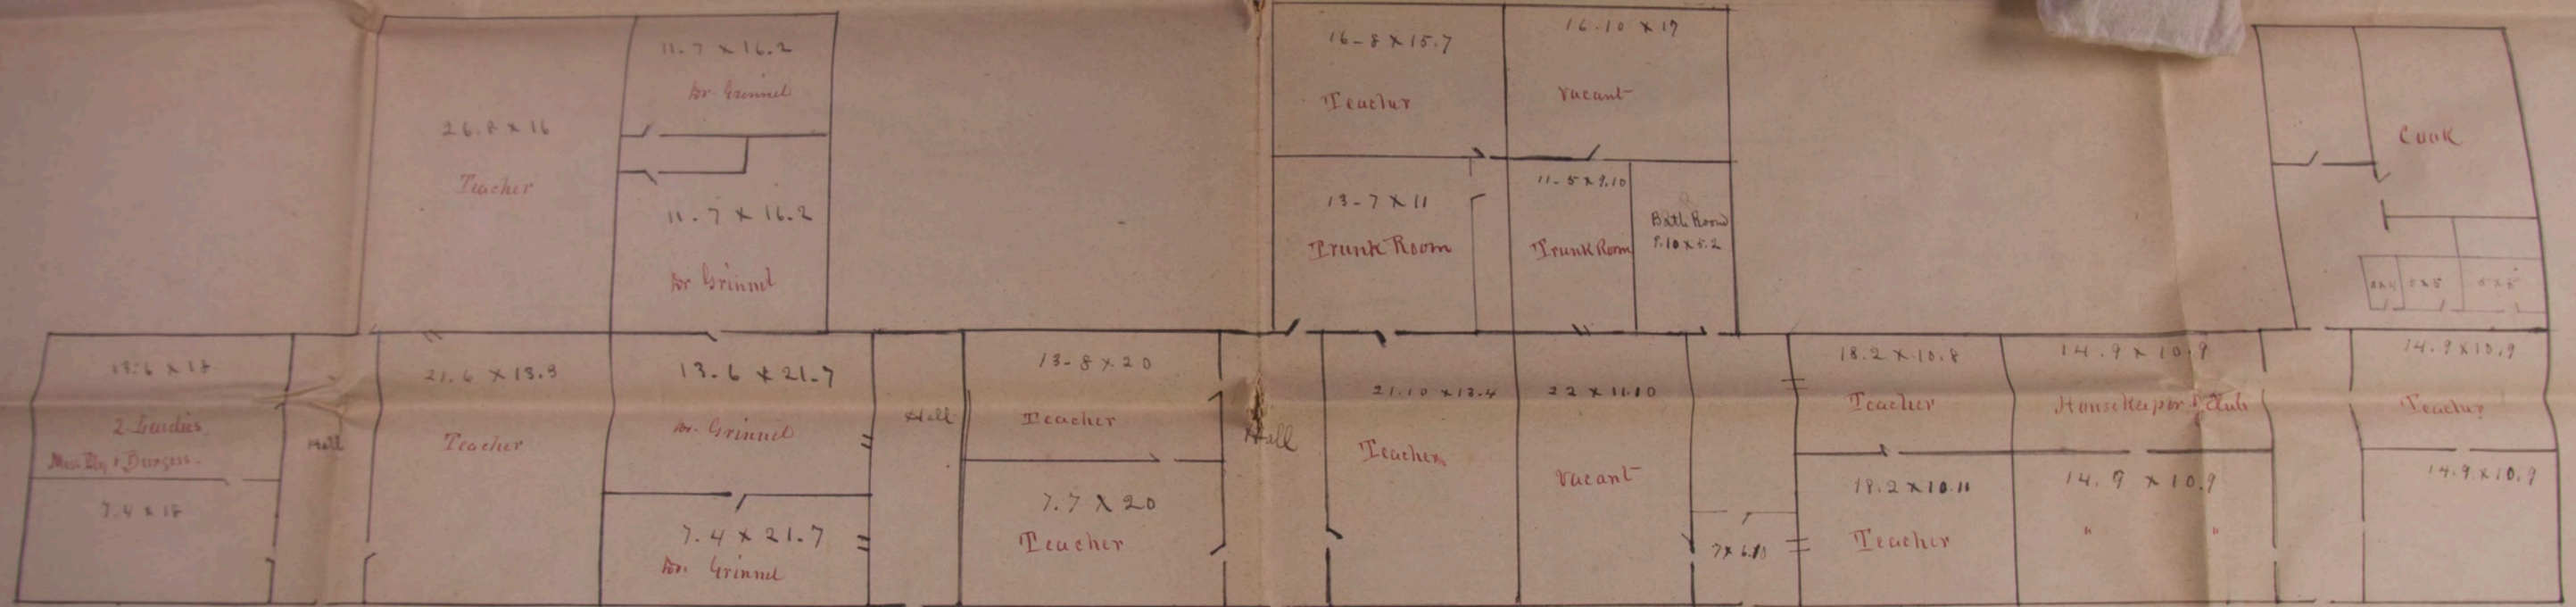 26.8 x 16
Teacher
11.7 x 16.2
Dr. Grinnel
11.7 x 16.2
Dr Grinnel
16-8 x 15.7
Teacher
16.10 x 17
Vacant
13-7 x 11
Trunk Room
11-5 x 9.10
Trunk Room
Bath Room
9.10 x 5.2
Cook
5 x 5
13.6 x 18
2 Ladies
Miss Ely & Burgess.
7.4 x 18
Hall
Teacher
13.6 x 21.7
Dr. Grinnel
7.4 x 21.7
Dr. Grinnel
Hall
13-8 x 20
Teacher
7.7 x 20
Teacher
Hall
21.10 x 13.4
Teacher
22 x 11.10
Vacant
7 x 6.10
18.2 x 10.8
Teacher
18.2 x 10.11
Teacher
14.9 x 10.9
Housekeeper & Club
14.9 x 10.9
" "
14.9 x 10.9
Teacher
14.9 x 10.9